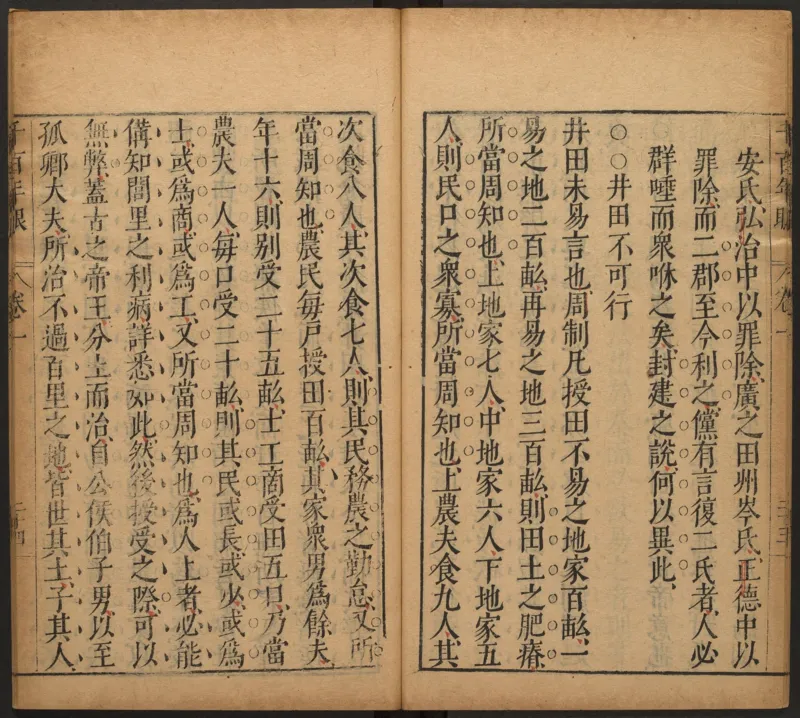 安氏弘治中以罪除廣之田州岑氏正德中以
罪除而二郡至今利之儻有言復二氏者人必
群唾而衆咻之矣封建之說何以異此
○○井田不可行
井田未易言也周制凡授田不易之地家百畝一
易之地二百畝再易之地三百畝則田土之肥瘠
所當周知也上地家七人中地家六人下地家五
人則民口之衆寡所當周知也上農夫食九人其
次食八人其次食七人則其民務農之勤怠又所
當周知也農民每戶授田百畝其家衆男爲餘夫
年十六則别受二十五畝士工商受田五口乃當
農夫一人每口受二十畝則其民或長或少或爲
士或爲商或爲工又所當周知也爲人上者必能
備知閭里之利病詳悉如此然後授受之際可以
無弊蓋古之帝王分土而治自公侯伯子男以至
孤卿大夫所治不過百里之地皆世其土子其人
千百年眼 卷一